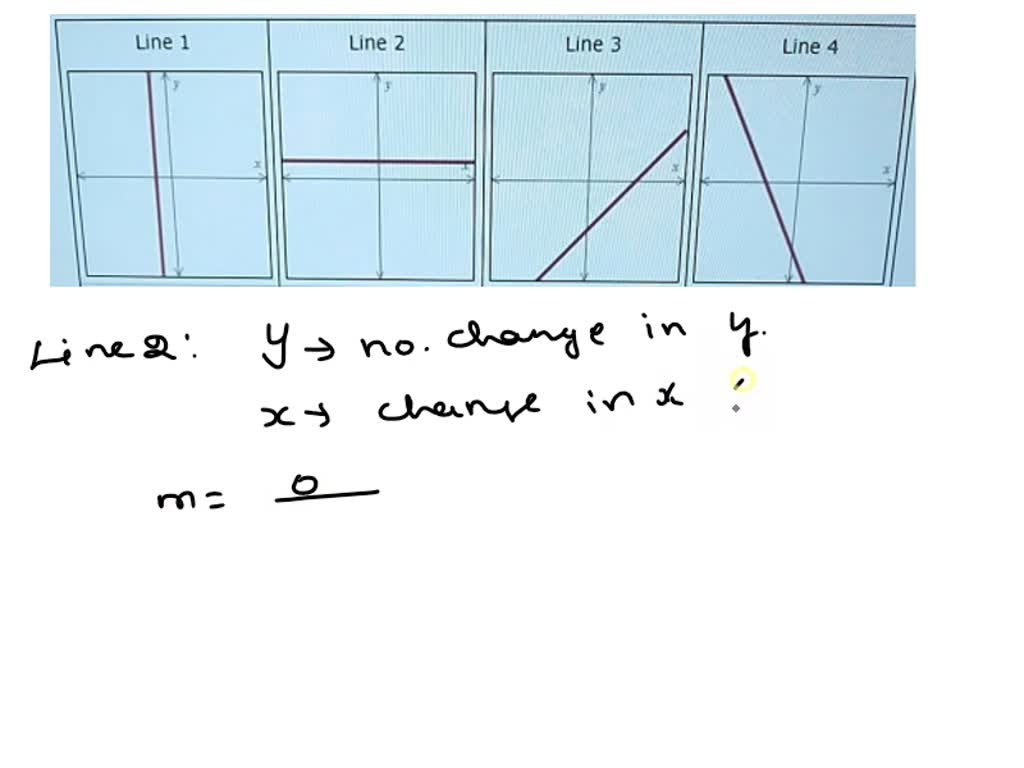 Line 1 Line 2 Line 3 Line 4
y y y y
x x x x
Line 2: y → no. change in y.
x → change in x
m = 0